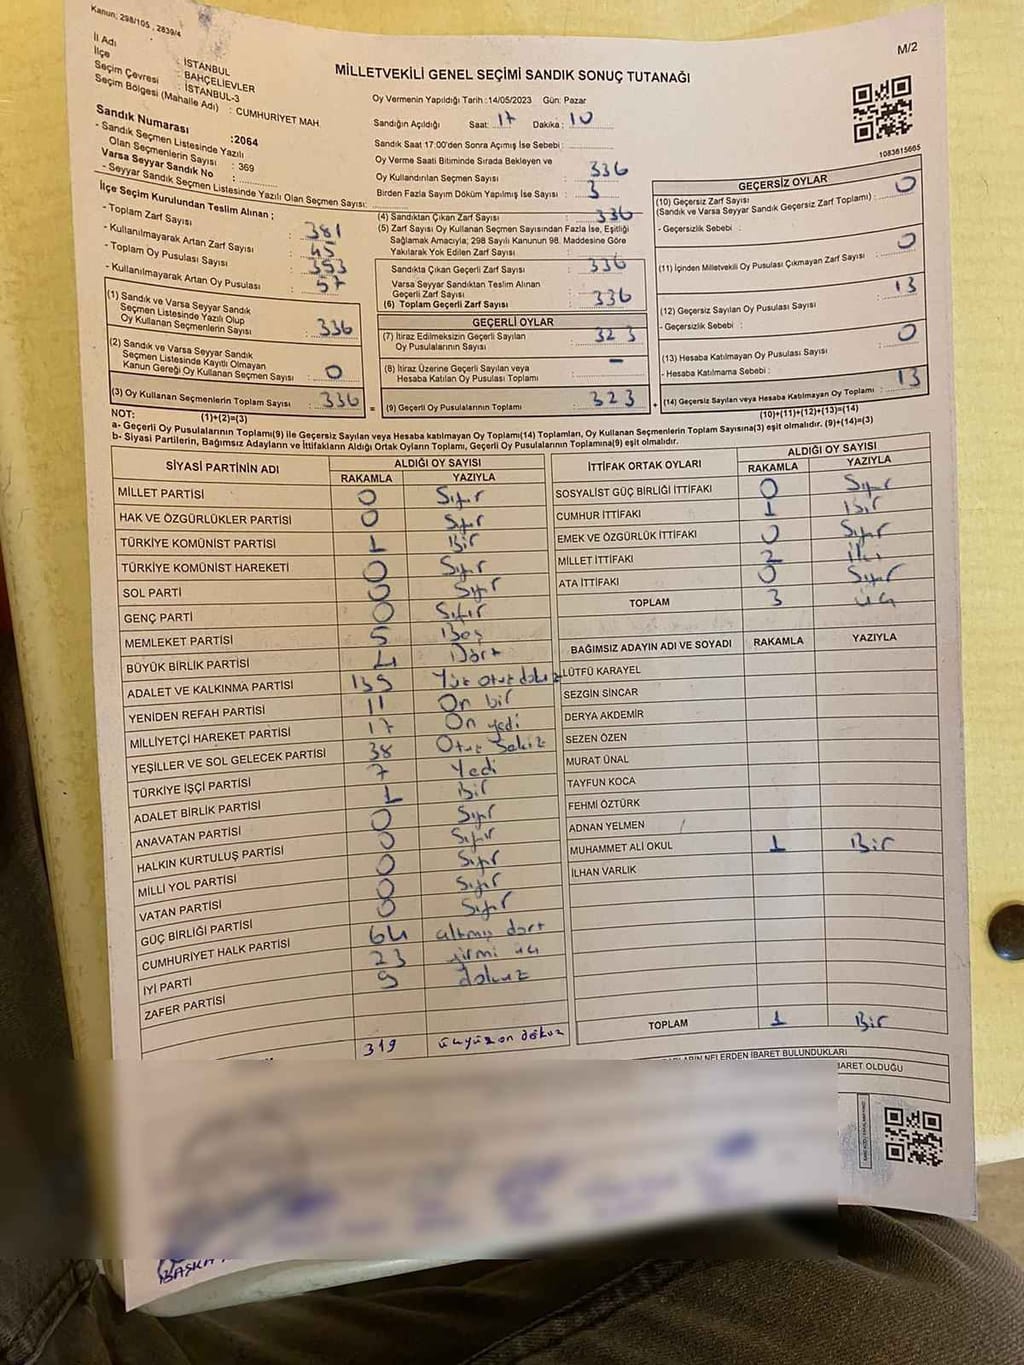 Kanun; 298/105 , 2839/4
M/2
MİLLETVEKİLİ GENEL SEÇİMİ SANDIK SONUÇ TUTANAĞI
İl Adı : İSTANBUL
İlçe : BAHÇELİEVLER
Seçim Çevresi : İSTANBUL-3
Seçim Bölgesi (Mahalle Adı) : CUMHURİYET MAH.
Sandık Numarası :2064
- Sandık Seçmen Listesinde Yazılı
Olan Seçmenlerin Sayısı : 369
Varsa Seyyar Sandık No :
- Seyyar Sandık Seçmen Listesinde Yazılı Olan Seçmen Sayısı:
Oy Vermenin Yapıldığı Tarih :14/05/2023 Gün: Pazar
Sandığın Açıldığı Saat: 17 Dakika: 10
Sandık Saat 17:00'den Sonra Açımış İse Sebebi :
Oy Verme Saati Bitiminde Sırada Bekleyen ve
Oy Kullandırılan Seçmen Sayısı : 336
Birden Fazla Sayım Döküm Yapılmış İse Sayısı : 3
1083615665
İlçe Seçim Kurulundan Teslim Alınan ;
- Toplam Zarf Sayısı : 381
- Kullanılmayarak Artan Zarf Sayısı : 45
- Toplam Oy Pusulası Sayısı : 353
- Kullanılmayarak Artan Oy Pusulası : 57
(1) Sandık ve Varsa Seyyar Sandık
Seçmen Listesinde Yazılı Olup
Oy Kullanan Seçmenlerin Sayısı : 336
(2) Sandık ve Varsa Seyyar Sandık
Seçmen Listesinde Kayıtlı Olmayan
Kanun Gereği Oy Kullanan Seçmen Sayısı : 0
(3) Oy Kullanan Seçmenlerin Toplam Sayısı : 336
(1)+(2)=(3)
(4) Sandıktan Çıkan Zarf Sayısı : 336
(5) Zarf Sayısı Oy Kullanan Seçmen Sayısından Fazla İse, Eşitliği
Sağlamak Amacıyla; 298 Sayılı Kanunun 98. Maddesine Göre
Yakılarak Yok Edilen Zarf Sayısı :
Sandıkta Çıkan Geçerli Zarf Sayısı : 336
Varsa Seyyar Sandıktan Teslim Alınan
Geçerli Zarf Sayısı :
(6) Toplam Geçerli Zarf Sayısı : 336
GEÇERLİ OYLAR
(7) İtiraz Edilmeksizin Geçerli Sayılan
Oy Pusulalarının Sayısı : 323
(8) İtiraz Üzerine Geçerli Sayılan veya
Hesaba Katılan Oy Pusulası Toplamı : -
= (9) Geçerli Oy Pusulalarının Toplamı : 323 +
GEÇERSİZ OYLAR
(10) Geçersiz Zarf Sayısı
(Sandık ve Varsa Seyyar Sandık Geçersiz Zarf Toplamı) : 0
- Geçersizlik Sebebi :
(11) İçinden Milletvekili Oy Pusulası Çıkmayan Zarf Sayısı : 0
(12) Geçersiz Sayılan Oy Pusulası Sayısı : 13
- Geçersizlik Sebebi :
(13) Hesaba Katılmayan Oy Pusulası Sayısı : 0
- Hesaba Katılmama Sebebi :
(14) Geçersiz Sayılan veya Hesaba Katılmayan Oy Toplamı : 13
(10)+(11)+(12)+(13)=(14)
NOT:
a- Geçerli Oy Pusulalarının Toplamı(9) ile Geçersiz Sayılan veya Hesaba katılmayan Oy Toplamı(14) Toplamları, Oy Kullanan Seçmenlerin Toplam Sayısına(3) eşit olmalıdır. (9)+(14)=(3)
b- Siyasi Partilerin, Bağımsız Adayların ve İttifakların Aldığı Ortak Oyların Toplamı, Geçerli Oy Pusulalarının Toplamına(9) eşit olmalıdır.
SİYASİ PARTİNİN ADI ALDIĞI OY SAYISI
RAKAMLA YAZIYLA
MİLLET PARTİSİ 0 Sıfır
HAK VE ÖZGÜRLÜKLER PARTİSİ 0 Sıfır
TÜRKİYE KOMÜNİST PARTİSİ 1 Bir
TÜRKİYE KOMÜNİST HAREKETİ 0 Sıfır
SOL PARTİ 0 Sıfır
GENÇ PARTİ 0 Sıfır
MEMLEKET PARTİSİ 5 Beş
BÜYÜK BİRLİK PARTİSİ 4 Dört
ADALET VE KALKINMA PARTİSİ 139 Yüz otuz dokuz
YENİDEN REFAH PARTİSİ 11 On bir
MİLLİYETÇİ HAREKET PARTİSİ 17 On yedi
YEŞİLLER VE SOL GELECEK PARTİSİ 38 Otuz Sekiz
TÜRKİYE İŞÇİ PARTİSİ 7 Yedi
ADALET BİRLİK PARTİSİ 1 Bir
ANAVATAN PARTİSİ 0 Sıfır
HALKIN KURTULUŞ PARTİSİ 0 Sıfır
MİLLİ YOL PARTİSİ 0 Sıfır
VATAN PARTİSİ 0 Sıfır
GÜÇ BİRLİĞİ PARTİSİ 0 Sıfır
CUMHURİYET HALK PARTİSİ 64 altmış dört
İYİ PARTİ 23 yirmi üç
ZAFER PARTİSİ 9 dokuz
319 üçyüz on dokuz
İTTİFAK ORTAK OYLARI ALDIĞI OY SAYISI
RAKAMLA YAZIYLA
SOSYALİST GÜÇ BİRLİĞİ İTTİFAKI 0 Sıfır
CUMHUR İTTİFAKI 1 Bir
EMEK VE ÖZGÜRLÜK İTTİFAKI 0 Sıfır
MİLLET İTTİFAKI 2 İki
ATA İTTİFAKI 0 Sıfır
TOPLAM 3 üç
BAĞIMSIZ ADAYIN ADI VE SOYADI RAKAMLA YAZIYLA
LÜTFÜ KARAYEL
SEZGİN SİNCAR
DERYA AKDEMİR
SEZEN ÖZEN
MURAT ÜNAL
TAYFUN KOCA
FEHMİ ÖZTÜRK
ADNAN YELMEN
MUHAMMET ALİ OKUL 1 Bir
İLHAN VARLIK
TOPLAM 1 Bir
NELERDEN İBARET BULUNDUKLARI
İBARET OLDUĞU